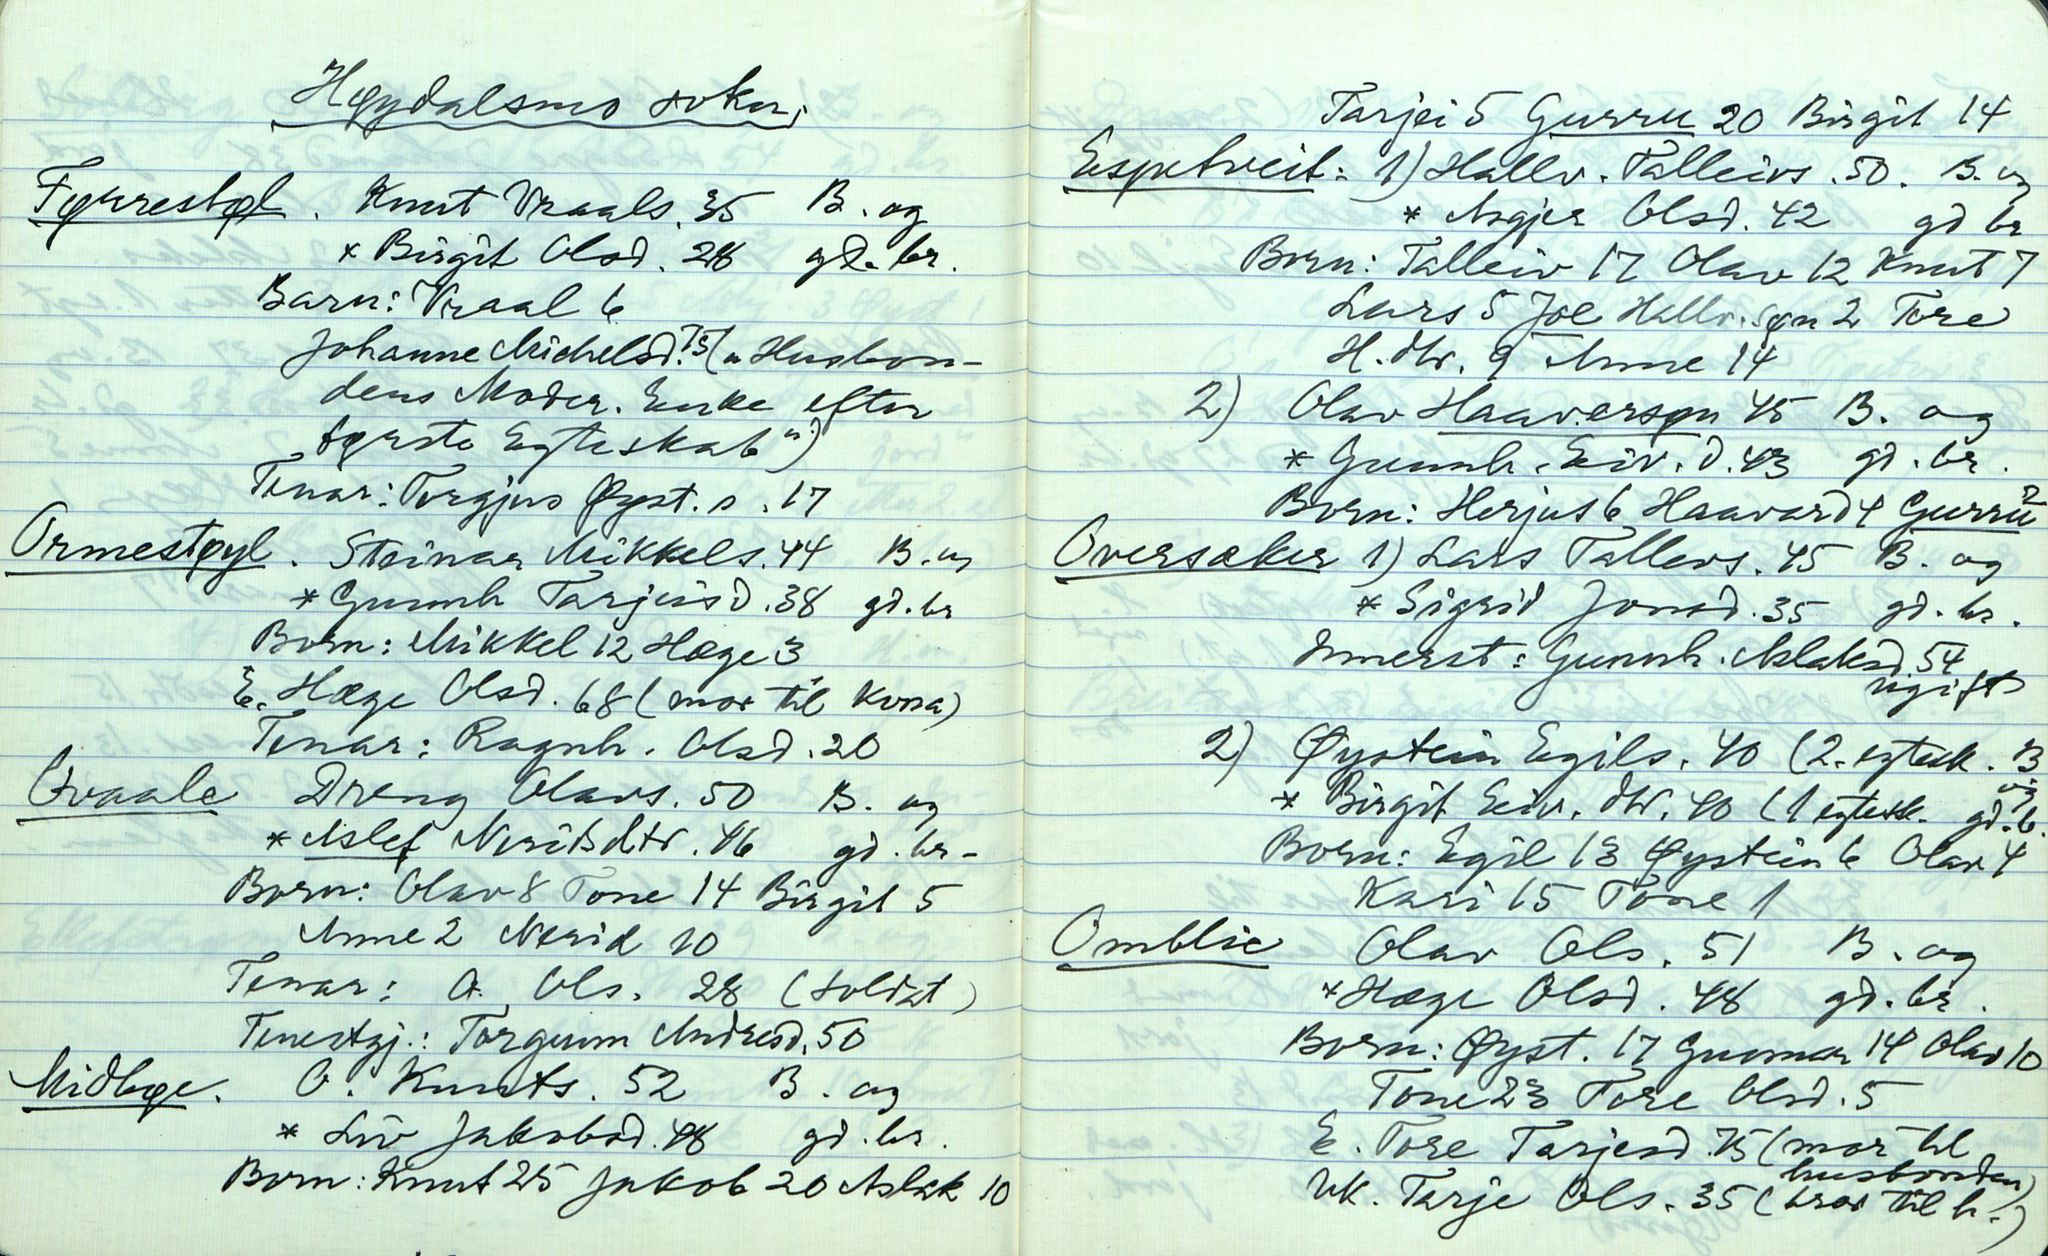 Høydalsmo sokn.
Fyrrestøl. Knut Vraals. 35 B. og
* Birgit Olsd. 28 gd. br.
Barn: Vraal 6
Johanne Michelsd. 75 („Husbon-
dens Moder. Enke efter
første Egteskab“)
Tenar: Torgjus Øyst. s. 17
Ormestøyl. Steinar Mikkels. 44 B. og
* Gunnh Tarjeisd. 38 gd. br
Born: Mikkel 12 Hæge 3
E. Hæge Olsd. 68 (mor til kona)
Tenar: Ragnh. Olsd. 20
Ovaale Dreng Olavs. 50 B. og
* Aslef Neridsdtr. 46 gd. br.
Born: Olav 8 Tone 14 Birgit 5
Anne 2 Nerid 10
Tenar: O. Ols. 28 (soldat)
Tenestgj.: Torgunn Andresd. 50
Midbøe. O. Knuts. 52 B. og
* Liv Jakobsd. 48 gd. br.
Born: Knut 25 Jakob 20 Aslak 10
Tarjei 5 Gurru 20 Birgit 14
Espetveit: 1) Hallv. Talleivs. 50. B. og
* Asgjer Olsd. 42 gd br
Born: Talleiv 17 Olav 12 Knut 7
Lars 5 Joe Hallv. søn 2 Tore
H. dtr. 9 Anne 14
2) Olav Haaversøn 45 B. og
* Gunnh. Eiv. d. 43 gd. br.
Born: Herjus 6 Haavard 4 Gurru 2
Oversaker 1) Lars Tallevs. 45 B. og
* Sigrid Jonsd. 35 gd. br.
Innerst: Gunnh. Aslaksd 54
ugift
2) Øystein Egils. 40 (2. egtesk. B og
* Birgit Eiv. dtr. 40 (1 egtesk. gd. b.
Born: Egil 13 Øystein 6 Olav 4
Kari 15 Tone 1
Omblie Olav Ols. 51 B. og
* Hæge Olsd. 48 gd. br.
Born: Øyst. 17 Gunnar 14 Olav 10
Tone 23 Tore Olsd. 5
E. Tore Tarjesd. 75 (mor til
husbonden)
Uk. Tarje Ols. 35 (bror til h.)